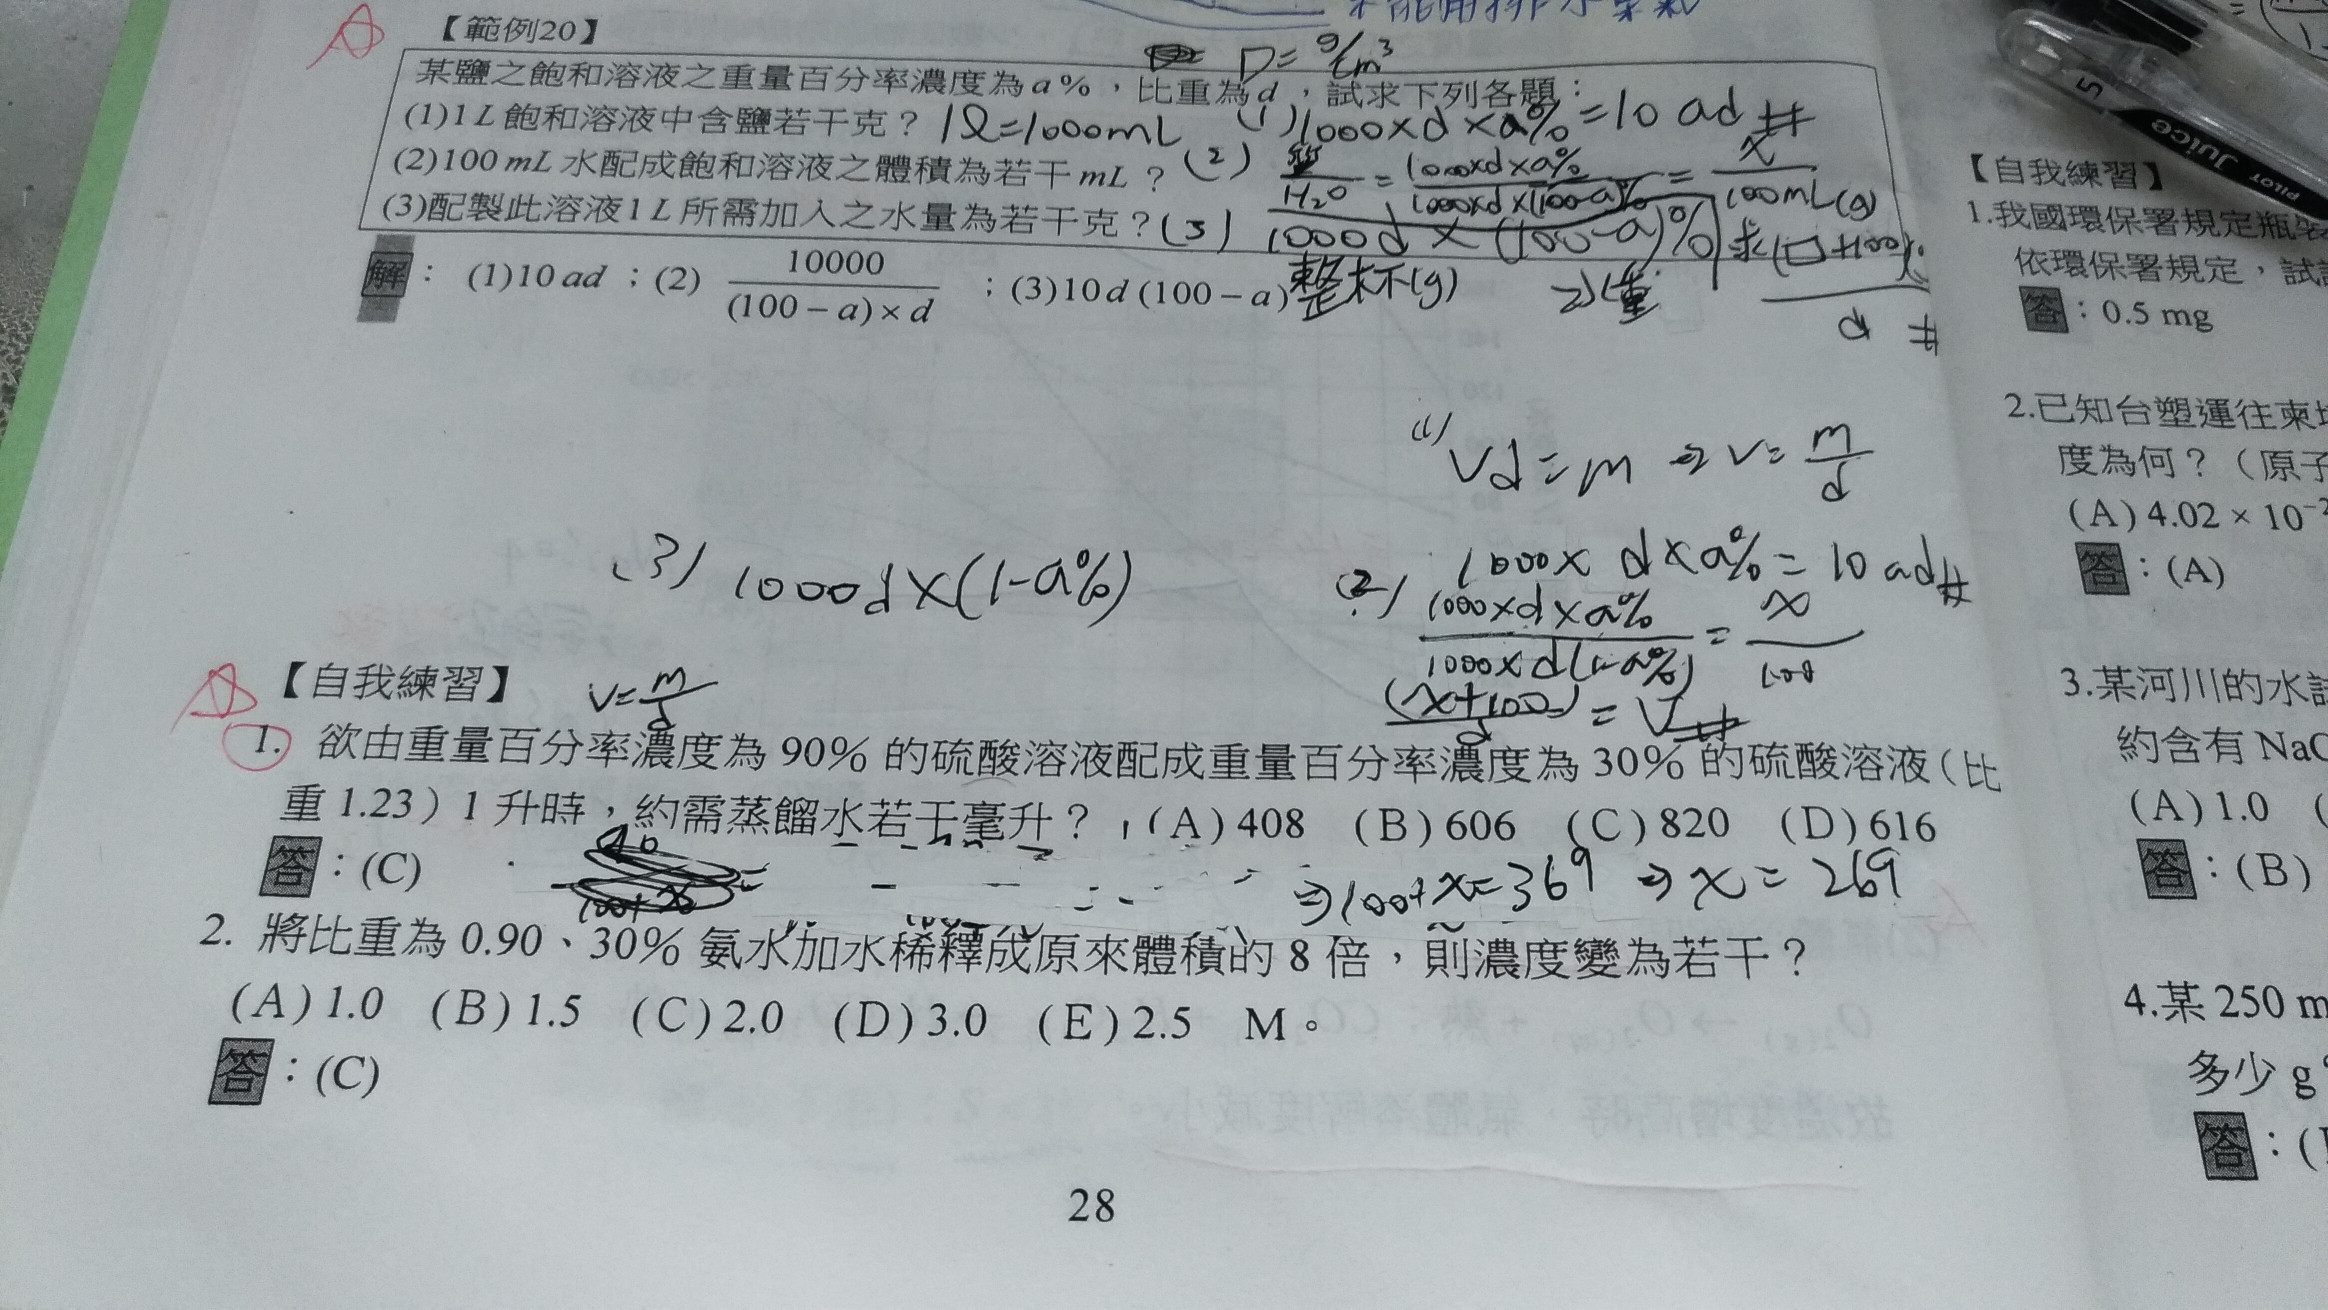 【範例20】
D=g/cm³
某鹽之飽和溶液之重量百分率濃度為a%,比重為d,試求下列各題:
(1)1L飽和溶液中含鹽若干克? 1ℓ=1000mL (1)1000×d×a%=10ad #
(2)100mL水配成飽和溶液之體積為若干mL? (2) 鹽/H₂O = 1000×d×a%/1000×d×(100-a)% = x/100mL(g)
(3)配製此溶液1L所需加入之水量為若干克? (3) 1000d×(100-a)% 求(口+100)
d #
解:(1)10ad;(2) 10000/(100-a)×d ;(3)10d(100-a) 整杯(g) 水重
(1) Vd=m ⇒ V=m/d
1000×d×a%=10ad #
(3) 1000d×(1-a%)
(2) 1000×d×a%/1000×d(1-a%) = x/100
(x+100)/d = V #
【自我練習】 V=m/d
1. 欲由重量百分率濃度為90%的硫酸溶液配成重量百分率濃度為30%的硫酸溶液(比
重1.23)1升時,約需蒸餾水若干毫升? (A)408 (B)606 (C)820 (D)616
答:(C)
90
100+x
⇒100+x=369 ⇒x=269
2. 將比重為0.90、30%氨水加水稀釋成原來體積的8倍,則濃度變為若干?
(A)1.0 (B)1.5 (C)2.0 (D)3.0 (E)2.5 M。
答:(C)
28
【自我練習】
1.我國環保署規定瓶裝
依環保署規定,試
答:0.5 mg
2.已知台塑運往柬
度為何?(原子
(A)4.02×10⁻²
答:(A)
3.某河川的水
約含有NaC
(A)1.0 (
答:(B)
4.某250 m
多少g
答:(
PILOT Juice 5